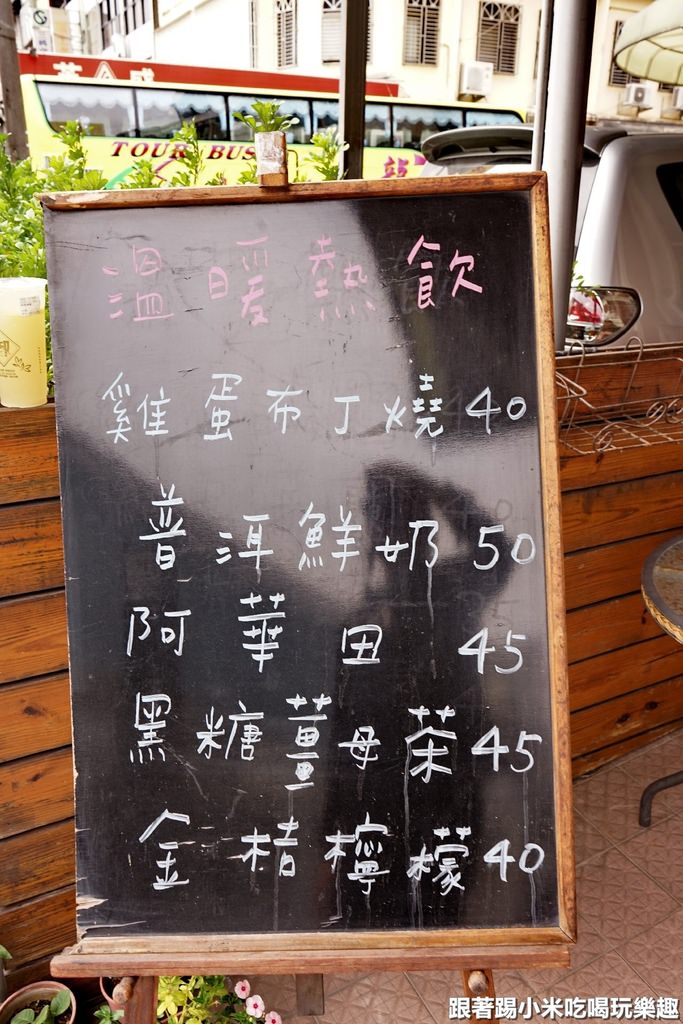 TOUR BUS
溫暖熱飲
雞蛋布丁燒40
普洱鮮奶50
阿華田 45
黑糖薑母茶45
金桔檸檬40
跟著踢小米吃喝玩樂趣